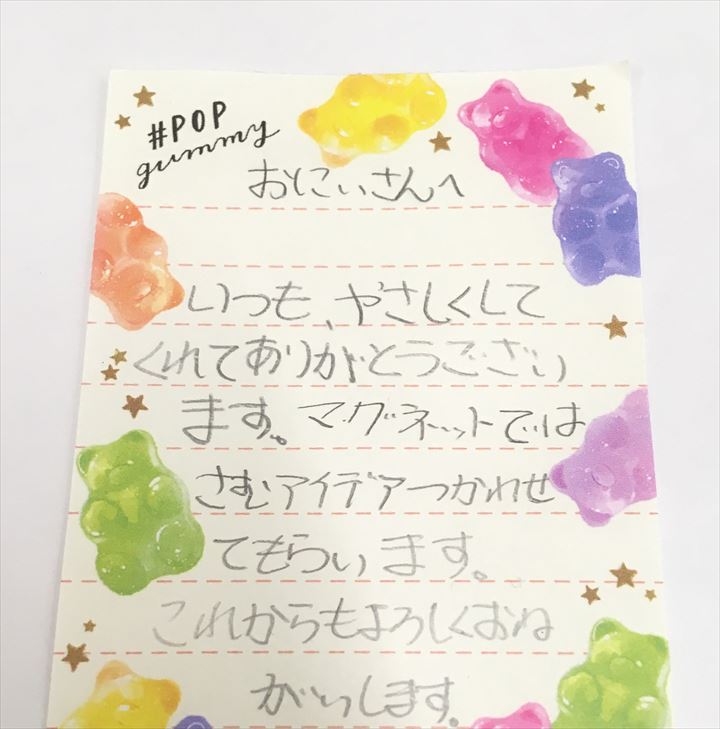 #POP
gummy
おにいさんへ
いつも、やさしくして
くれてありがとうござい
ます。マグネットでは
さむアイデアつかわせ
てもらいます。
これからもよろしくおね
がいします。